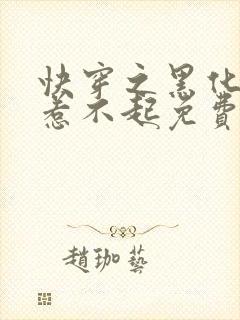 快穿之黑化
惹不起免費
趙珈藝